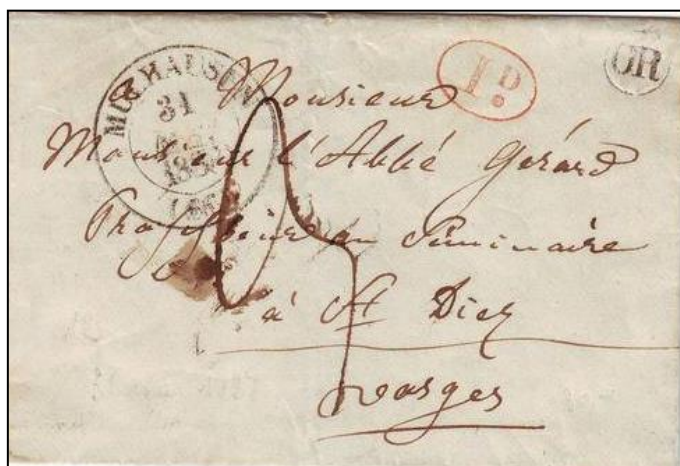 MULHAUSEN
31
1D
OR
Monsieur
Monsieur l'Abbé Gérard
Professeur au Séminaire
à St Diez
vosges